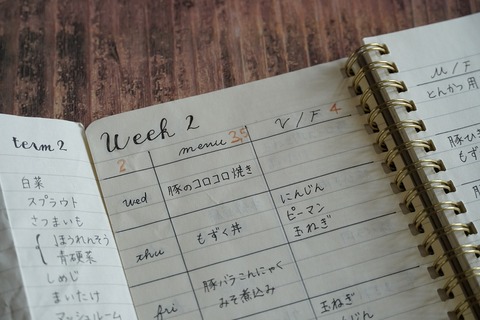 term 2
白菜
スプラウト
さつまいも
ほうれんそう
青梗菜
しめじ
まいたけ
マッシュルーム
Week 2
2
menu 3
V / F 4
wed
豚のコロコロ焼き
thu
もずく丼
にんじん
ピーマン
玉ねぎ
fri
豚バラこんにゃく
みそ煮込み
玉ねぎ
んじん
M / F
とんかつ用
豚ひき
もず